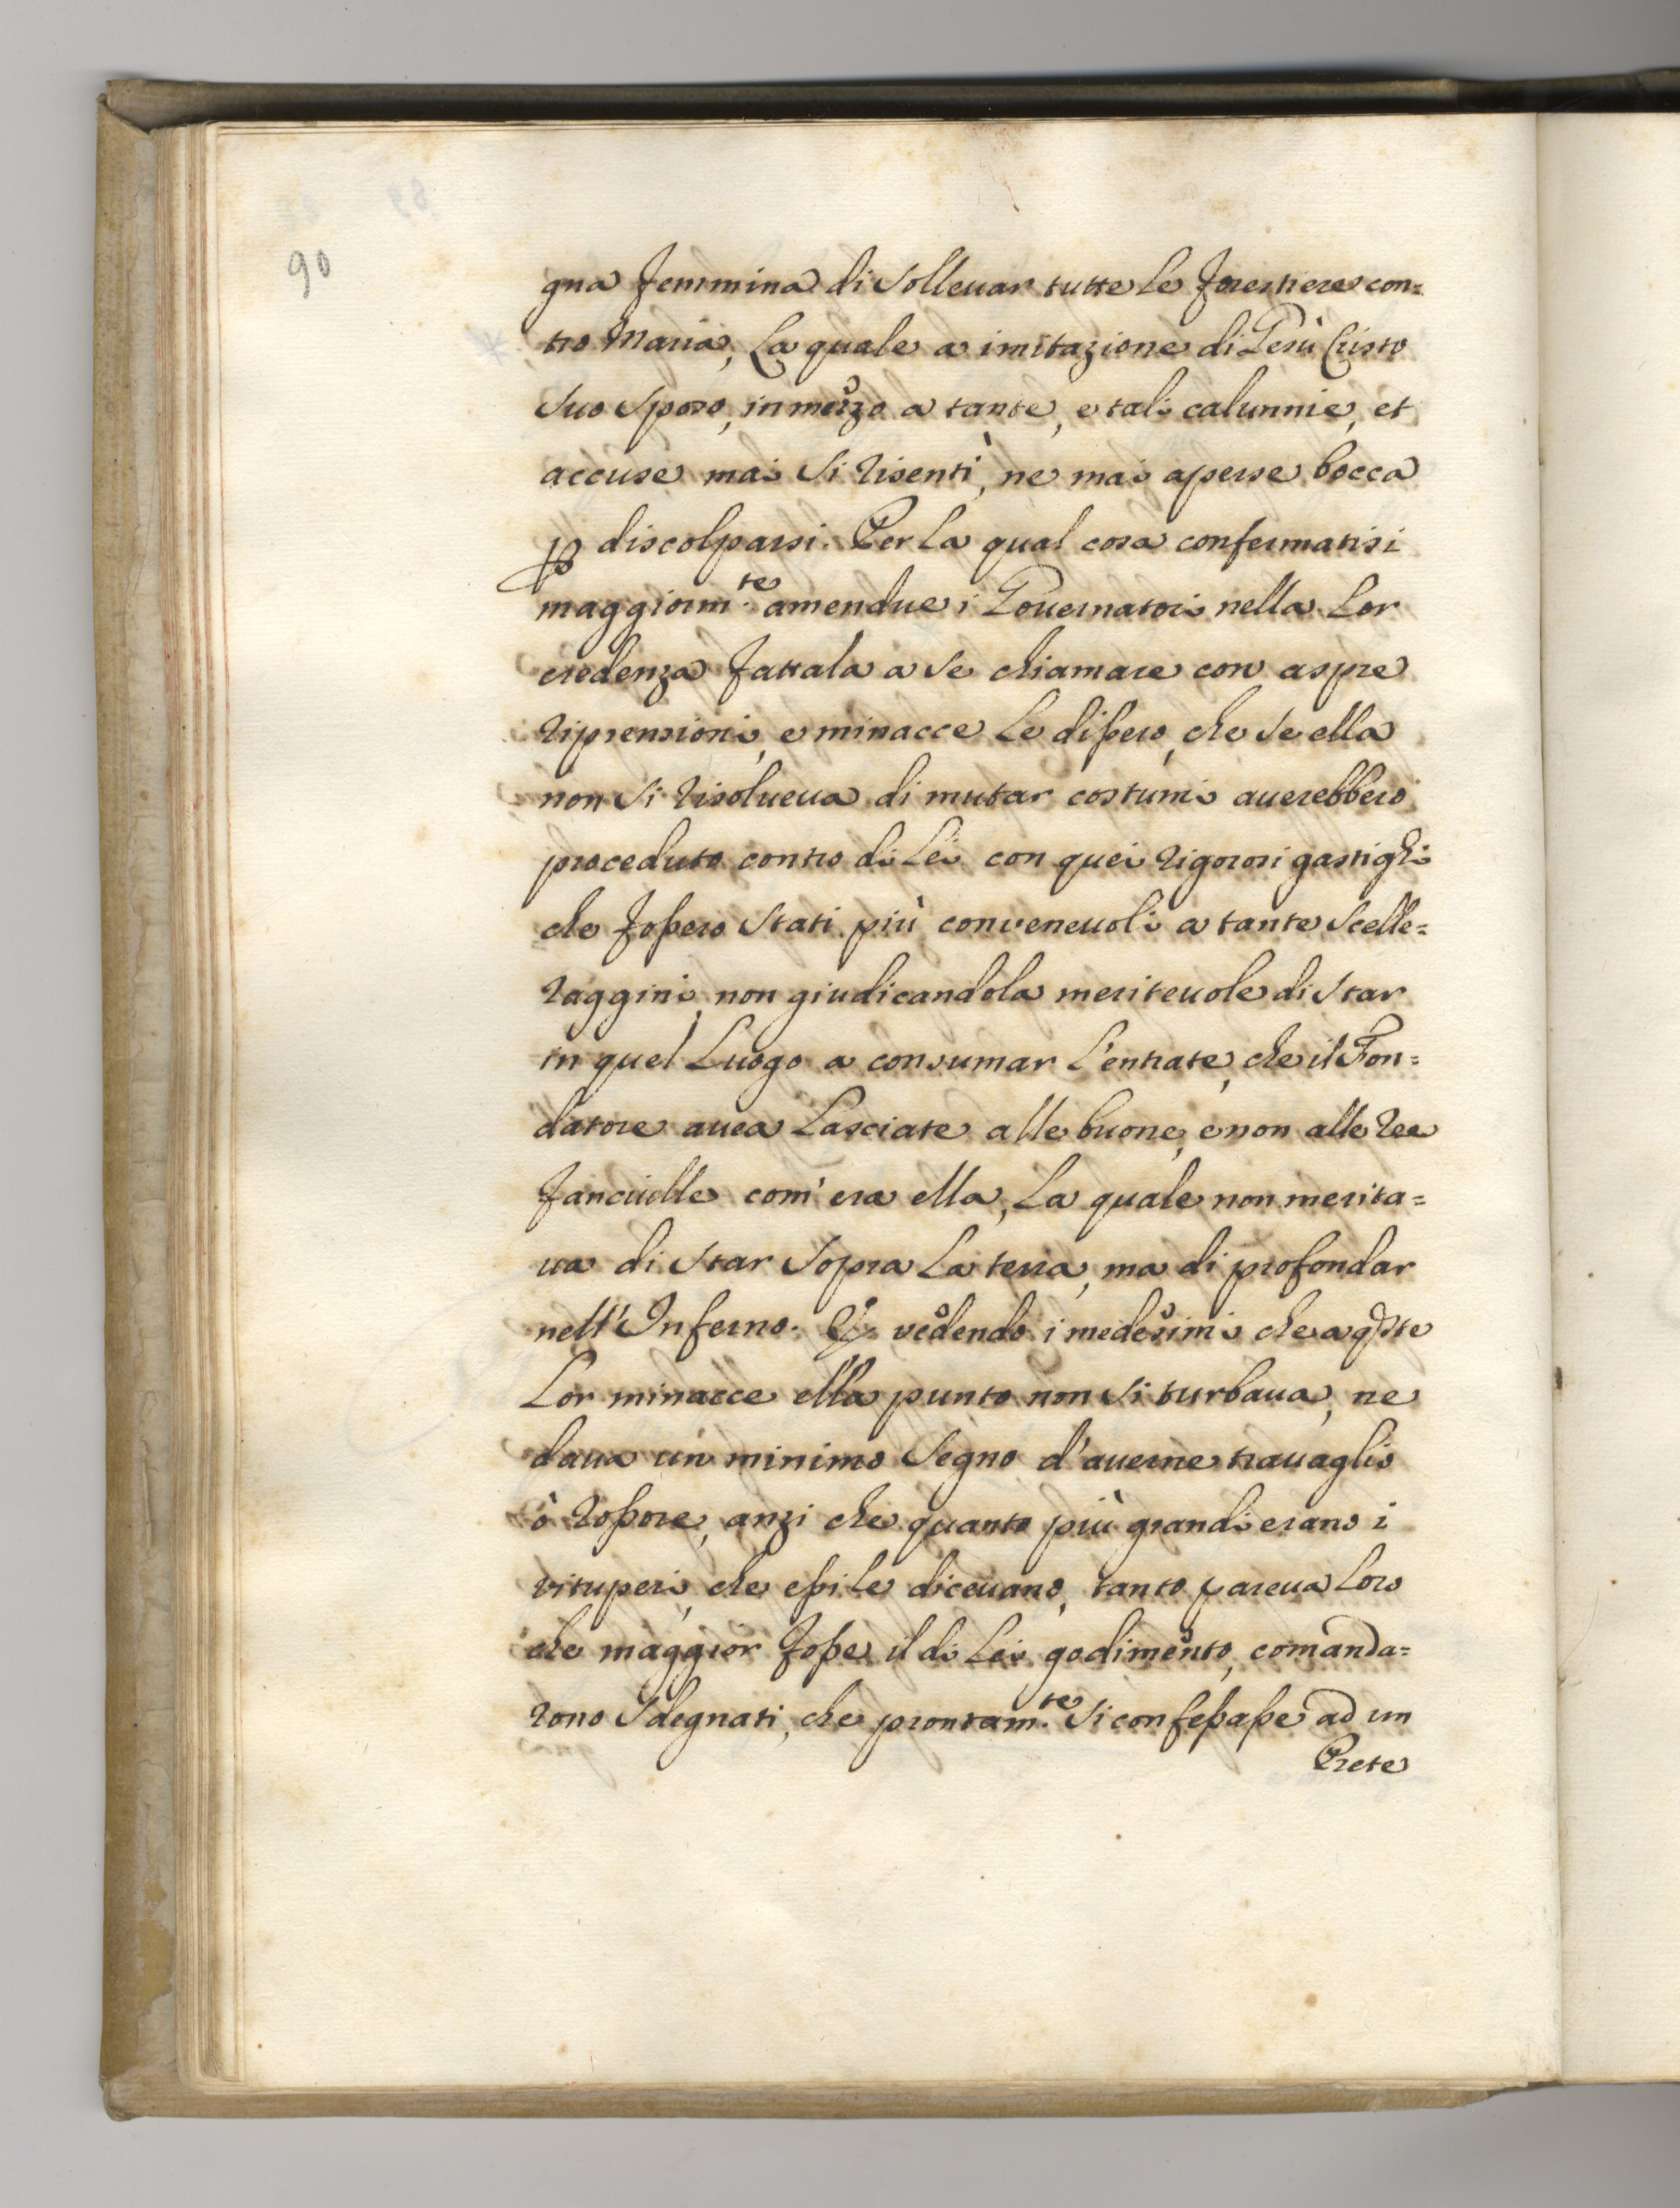 90
gna femmina di sollevar tutte le forestiere con=
tro Maria, La quale a imitazione di Gesù Cristo
suo sposo, in mezzo a tante, e tali calunnie, et
accuse mai si risentì, ne mai aperse bocca
ꝑ discolparsi. Per La qual cosa confermatisi
maggiorm.te amendue i Governatori nella Lor
credenza fattala a se chiamare con aspre
riprensioni, e minacce Le dissero, che se ella
non si risolveva di mutar costumi averebbero
proceduto contro di Lei con quei rigorosi gastighi
che fossero stati più convenevoli a tante scelle=
raggini, non giudicandola meritevole di star
in quel Luogo a consumar L'entrate, che il Fon=
datore avea Lasciate alle buone, e non alle ree
fanciulle com'era ella, La quale non merita=
va di star sopra La terra, ma di profondar
nell'Inferno. E vedendo i medesimi che a qste
Lor minacce ella punto non si turbava, ne
dava un minimo segno d'averne travaglio
ò rossore, anzi che quanto più grandi erano i
vituperi, che essi Le dicevano, tanto pareva Loro
che maggior fosse il di Lei godimento, comanda=
rono sdegnati, che prontam.te si confessasse ad un
Prete